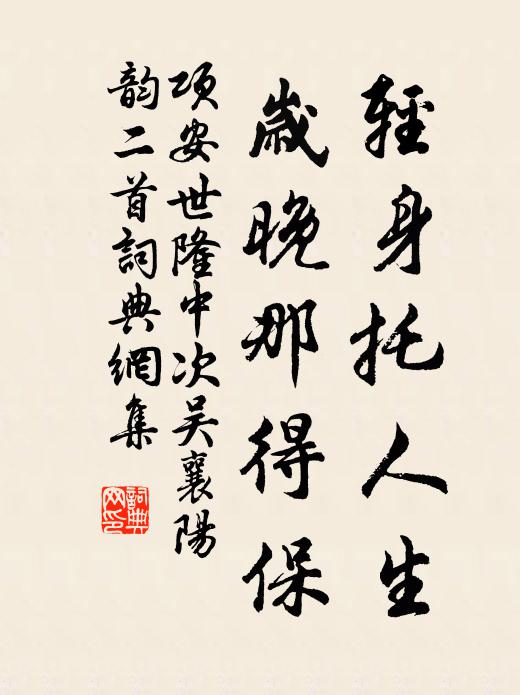 輕身托人生
歲晚那得保
項安世隆中次吴襄陽
韵二首詞典網集
詞典網印